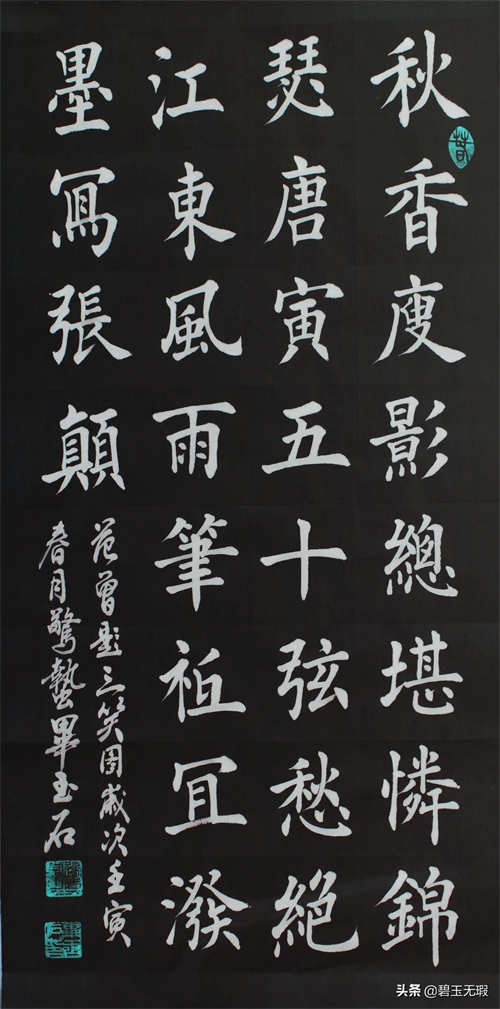 秋香廋影總堪憐錦
瑟唐寅五十弦愁絶
江東風雨筆祗冝潑
墨冩張顛
范曾題三笑圖歲次壬寅
春月驚蟄畢玉石
头条 @碧玉无瑕